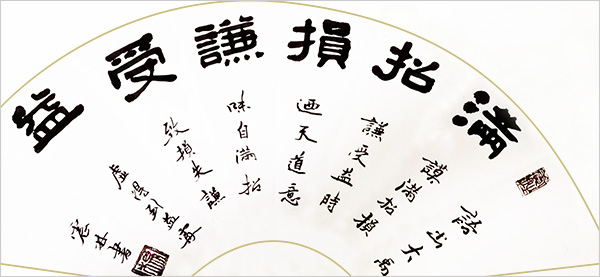 滿招損謙受益
語出大禹
謨滿招損
謙受益時
迺天道意
味自滿招
致損失謙
虛得到益
林書